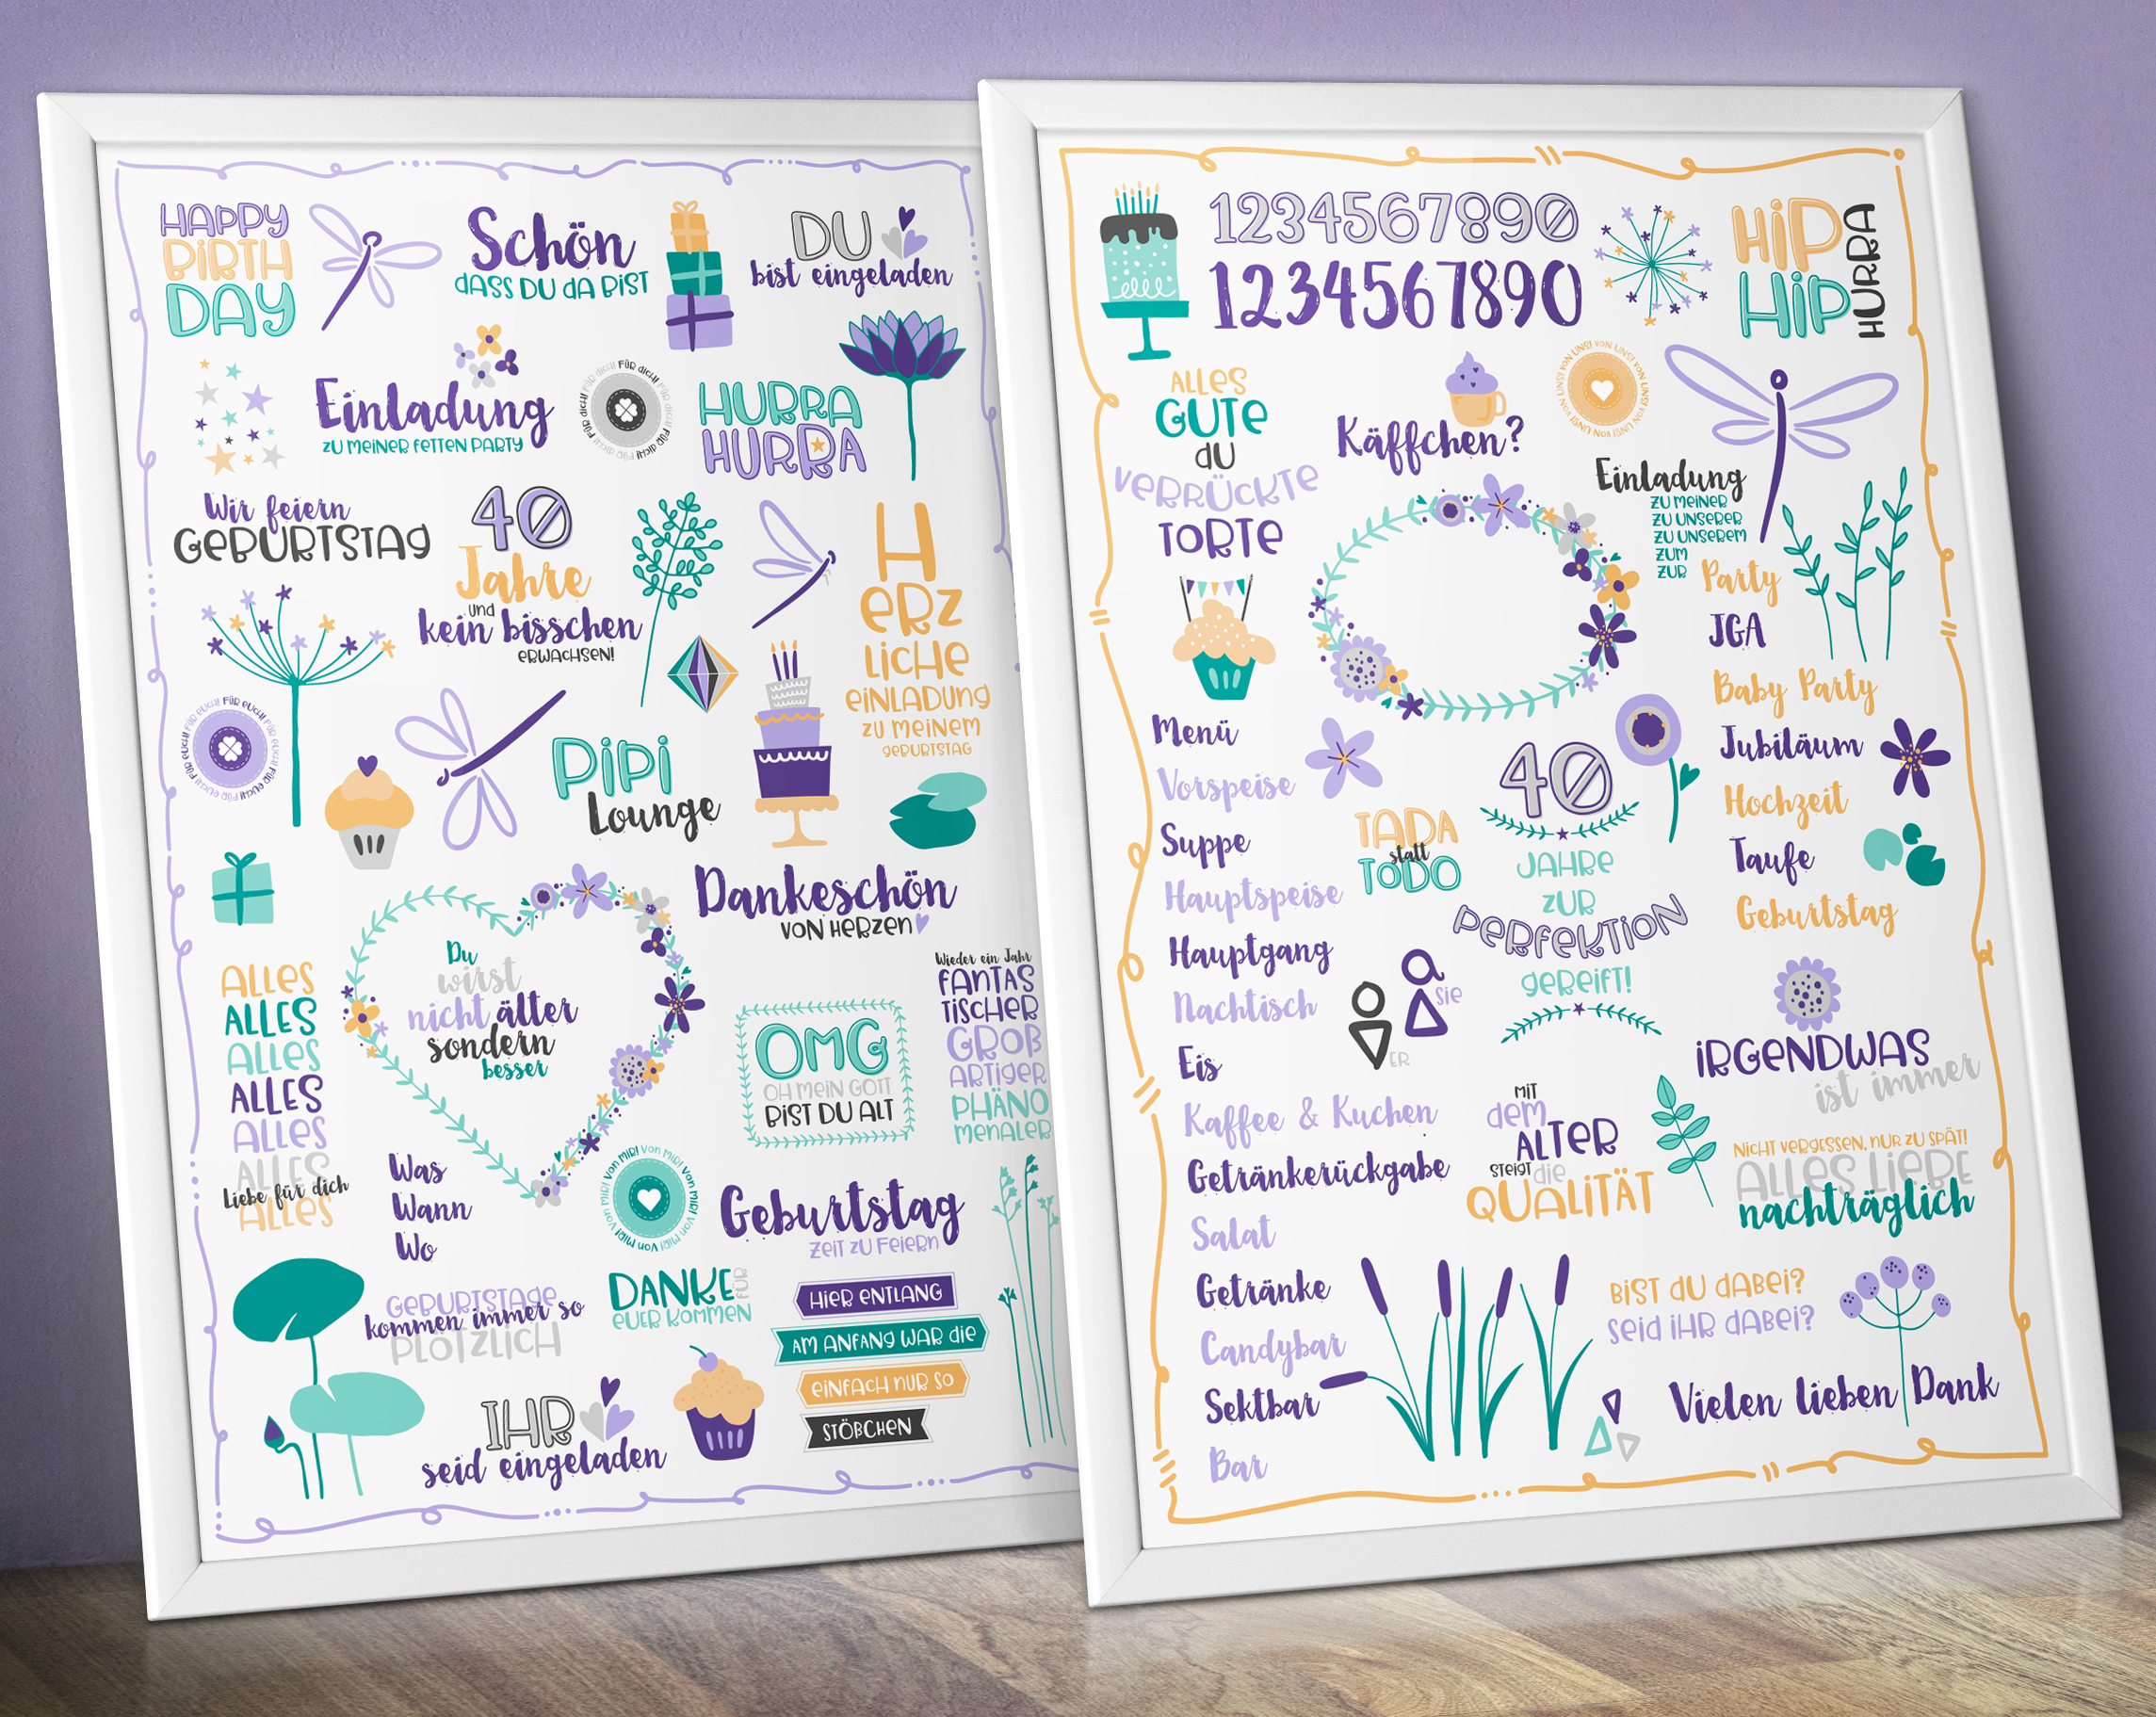 HAPPY
BIRTH
DAY
Schön
DASS DU DA BIST
DU
bist eingeladen
Einladung
ZU MEINER FETTEN PARTY
FÜR dich! FÜR dich! FÜR dich! FÜR dich! FÜR dich! FÜR dich!
HURRA
HURRA
Wir feiern
GEBURTSTAG
40
Jahre
und
kein bisschen
ERWACHSEN!
H
ERZ
LICHE
EINLADUNG
ZU MEINEM
GEBURTSTAG
FÜR EUCH! FÜR EUCH! FÜR EUCH! FÜR EUCH! FÜR EUCH! FÜR EUCH!
PIPI
Lounge
Dankeschön
VON HERZEN
Du
wirst
nicht älter
sondern
besser
ALLES
ALLES
ALLES
ALLES
ALLES
ALLES
Liebe für dich
ALLES
OMG
OH MEIN GOTT
BIST DU ALT
Wieder ein Jahr
FANTAS
TISCHER
GROß
ARTIGER
PHÄNO
MENALER
Was
Wann
Wo
VON MIR! VON MIR! VON MIR! VON MIR! VON MIR! VON MIR!
Geburtstag
ZEIT ZU FEIERN
GEBURTSTAGE
kommen immer so
PLÖTZLICH
DANKE FÜR
EUER KOMMEN
HIER ENTLANG
AM ANFANG WAR die
EINFACH NUR SO
STÖBCHEN
IHR
seid eingeladen
1234567890
1234567890
HIP
HIP
HURRA
ALLES
GUTE
dU
VERRÜCKTE
TORTE
Käffchen?
VON UNS! VON UNS! VON UNS! VON UNS! VON UNS! VON UNS!
Einladung
ZU MEINER
ZU UNSERER
ZU UNSEREM
ZUM
ZUR
Party
JGA
Baby Party
Jubiläum
Hochzeit
Taufe
Geburtstag
Menü
Vorspeise
Suppe
Hauptspeise
Hauptgang
Nachtisch
Eis
Kaffee & Kuchen
Getränkerückgabe
Salat
Getränke
Candybar
Sektbar
Bar
TADA
statt
TODO
40
JAHRE
ZUR
PERFEKTION
GEREIFT!
SIE
ER
IRGENDWAS
ist immer
MIT
dEM
ALTER
STEIGT die
QUALITÄT
NICHT VERGESSEN, NUR ZU SPÄT!
ALLES LIEBE
nachträglich
BIST dU DABEI?
SEID IHR DABEI?
Vielen lieben Dank